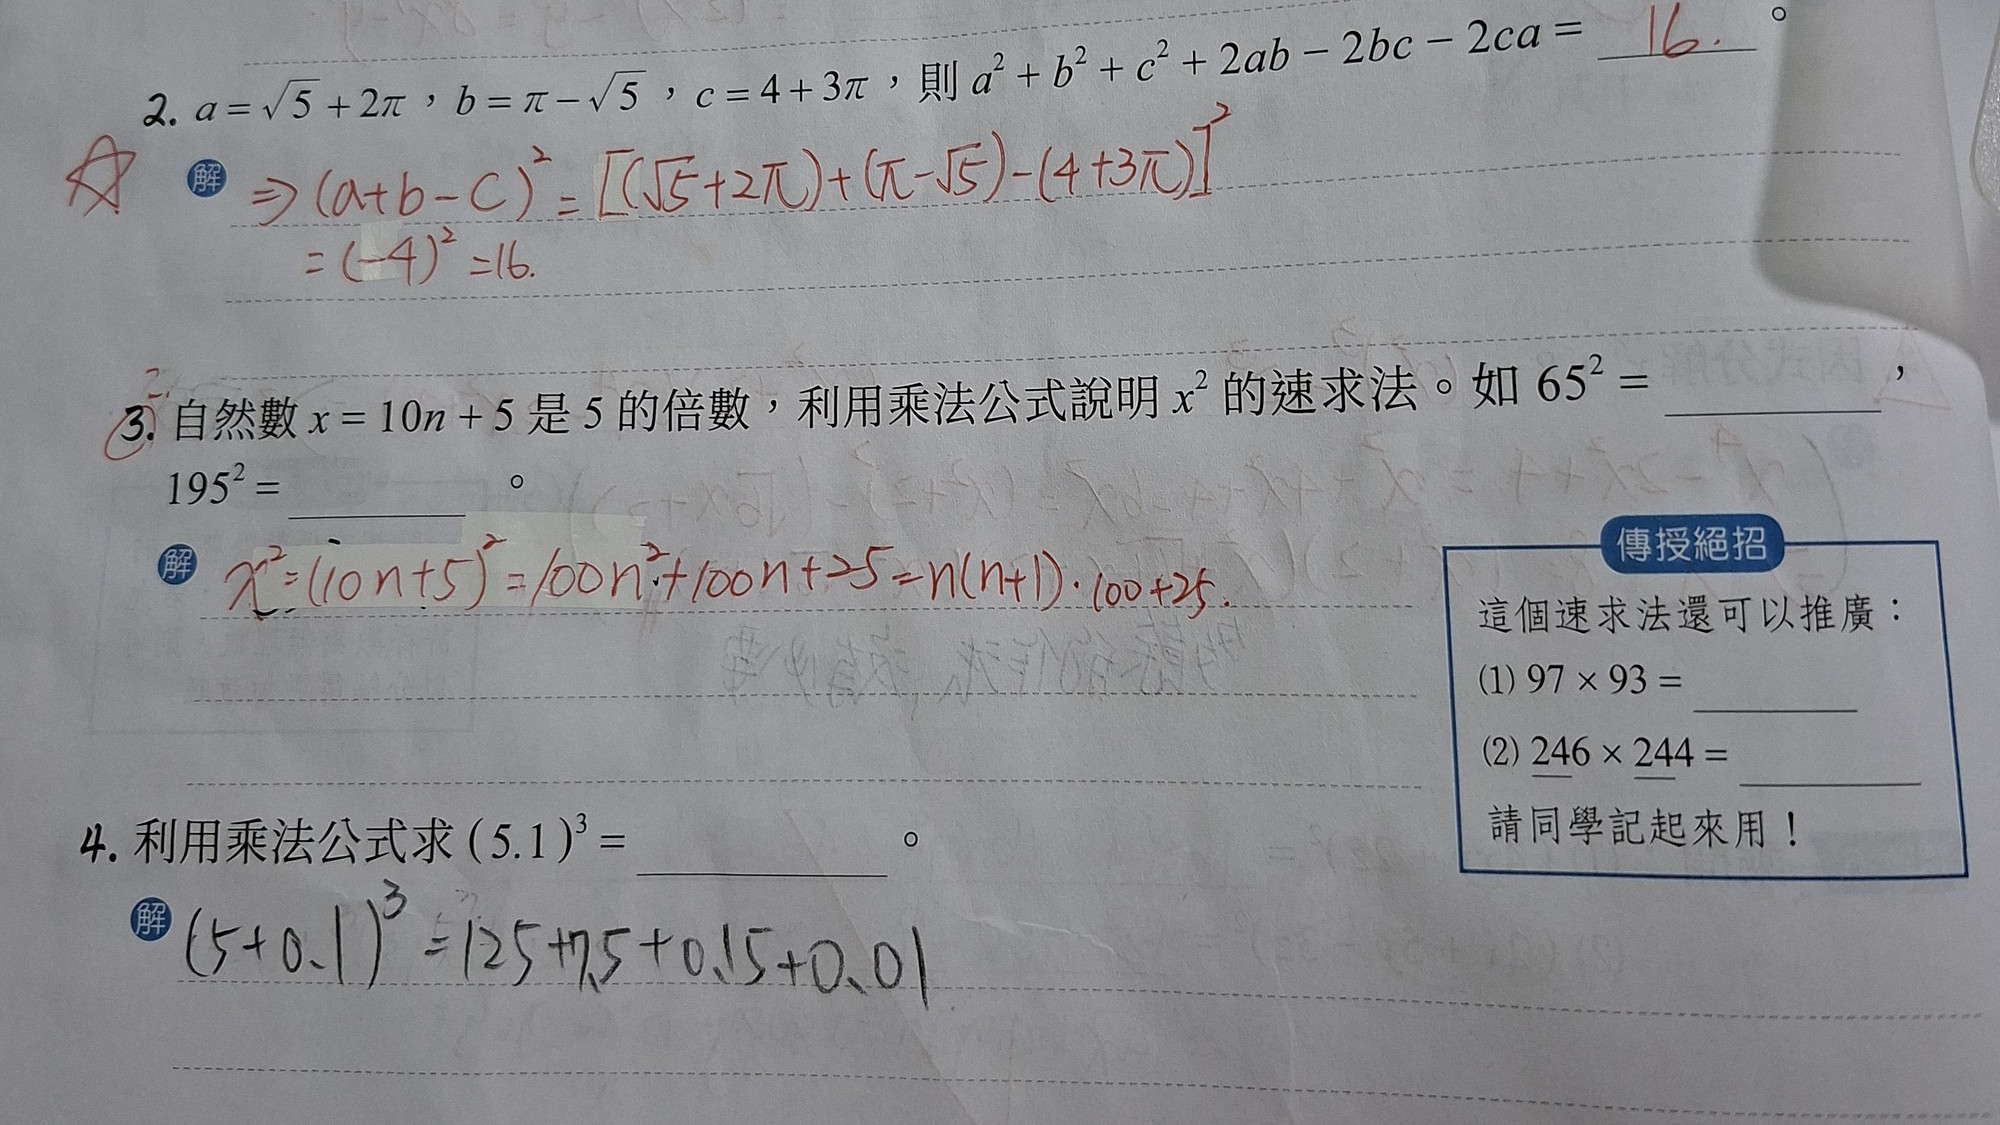 2. a = √5 + 2π，b = π − √5，c = 4 + 3π，則 a² + b² + c² + 2ab − 2bc − 2ca = 16. 。
解 ⇒ (a+b−c)² = [(√5+2π)+(π−√5)−(4+3π)]²
= (−4)² = 16.
3. 自然數 x = 10n + 5 是 5 的倍數，利用乘法公式說明 x² 的速求法。如 65² = ______，
195² = ______。
解 x² = (10n+5)² = 100n² + 100n + 25 = n(n+1)·100+25.
傳授絕招
這個速求法還可以推廣：
(1) 97 × 93 = ______
(2) 246 × 244 = ______
請同學記起來用！
4. 利用乘法公式求 (5.1)³ = ______。
解 (5+0.1)³ = 125+7.5+0.15+0.01